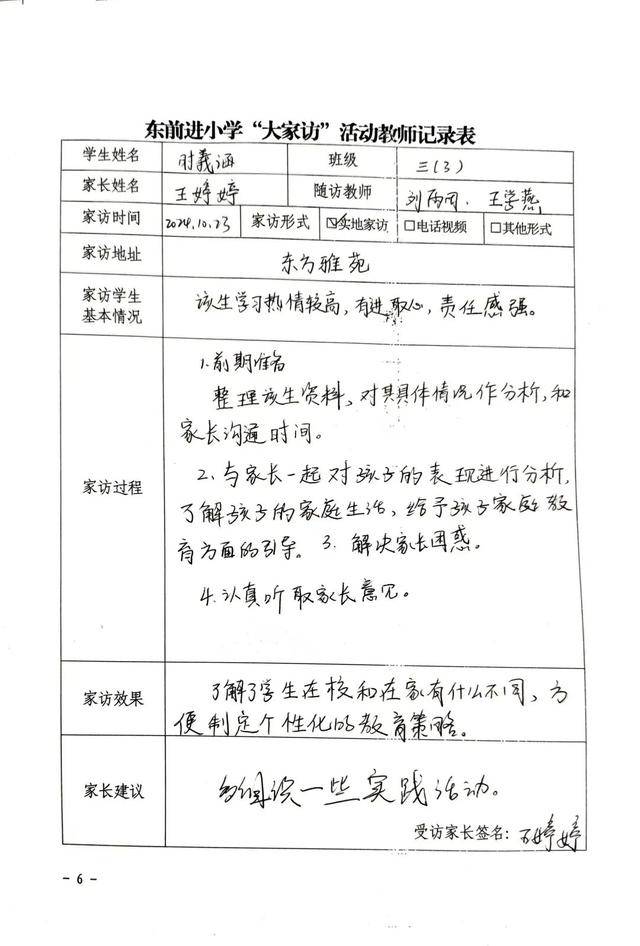 东前进小学“大家访”活动教师记录表
学生姓名 时義涵 班级 三(3)
家长姓名 王婷婷 随访教师 刘雨 王学燕
家访时间 2024.10.23 家访形式 ☑实地家访 □电话视频 □其他形式
家访地址 东方雅苑
家访学生 该生学习热情较高,有进取心,责任感强。
基本情况
1.前期准备
整理该生资料,对其具体情况作分析,和
家长沟通时间。
家访过程
2、与家长一起对孩子的表现进行分析,
了解孩子的家庭生活,给予孩子家庭教
育方面的引导。3.解决家长困惑。
4.认真听取家长意见。
家访效果
了解了学生在校和在家有什么不同,方
便制定个性化的教育策略。
家长建议 多组织一些实践活动。
受访家长签名:王婷婷
- 6 -